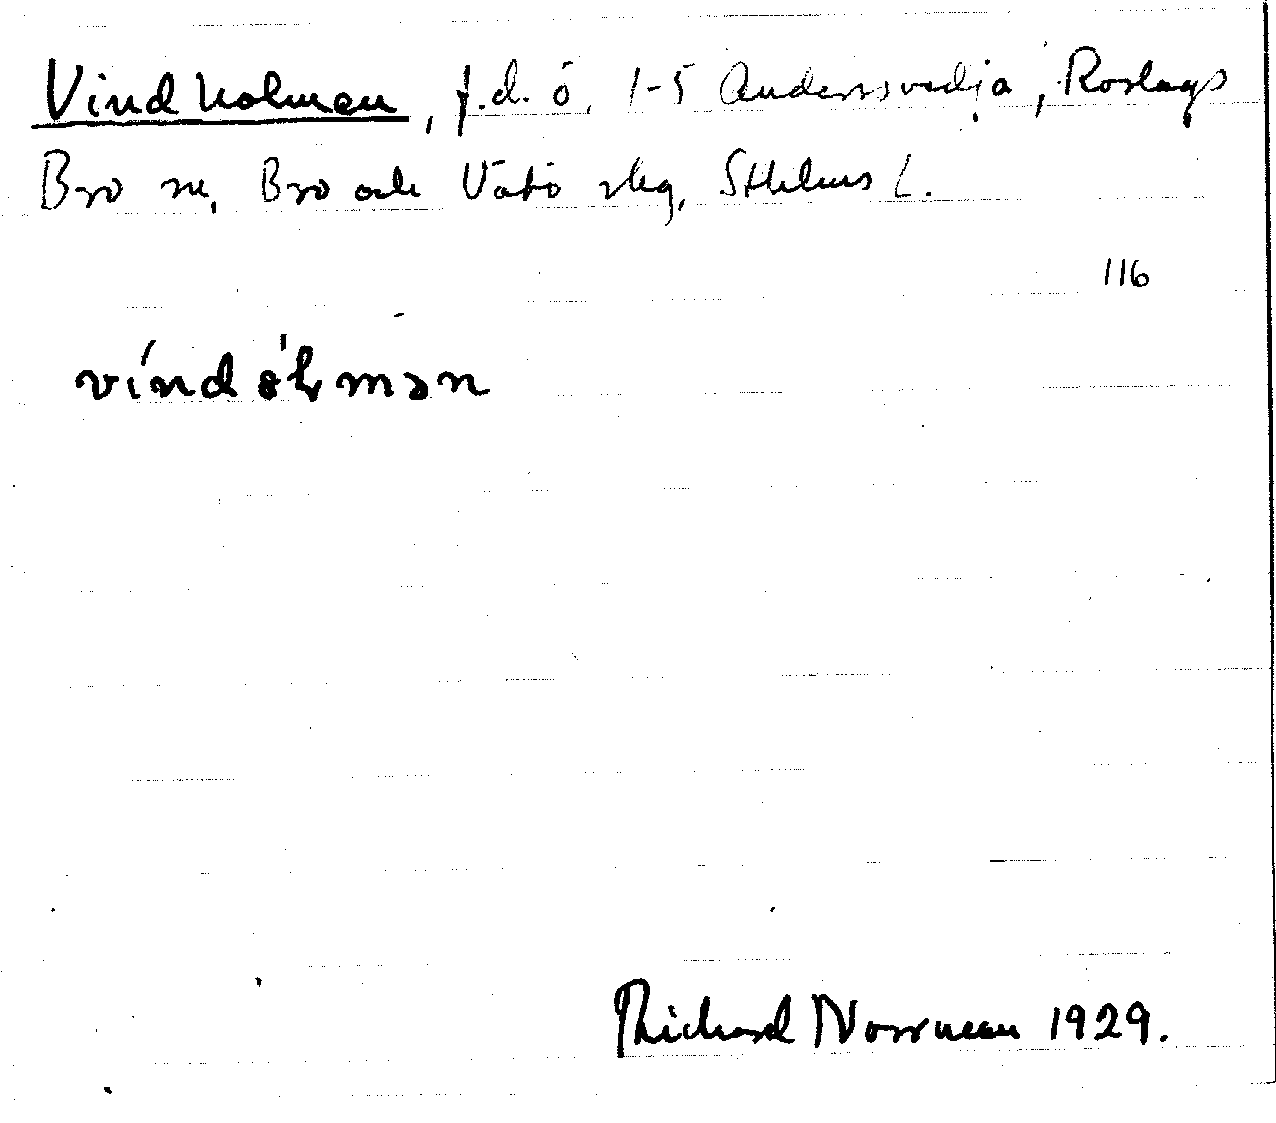 Vindholmen, f.d. ö, 1-5 Andersvedja, Roslags
Bro sn, Bro och Vätö skg, Sthlms l.
116
víndòl̥mən
Richard Norrman 1929.